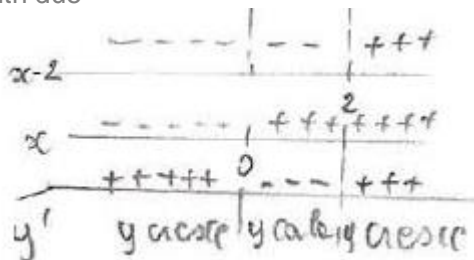 - - - - - - - +++
x-2
2
- - - - - +++++++
x
0
+++++ - - - +++
y' y cresce y cala y cresce